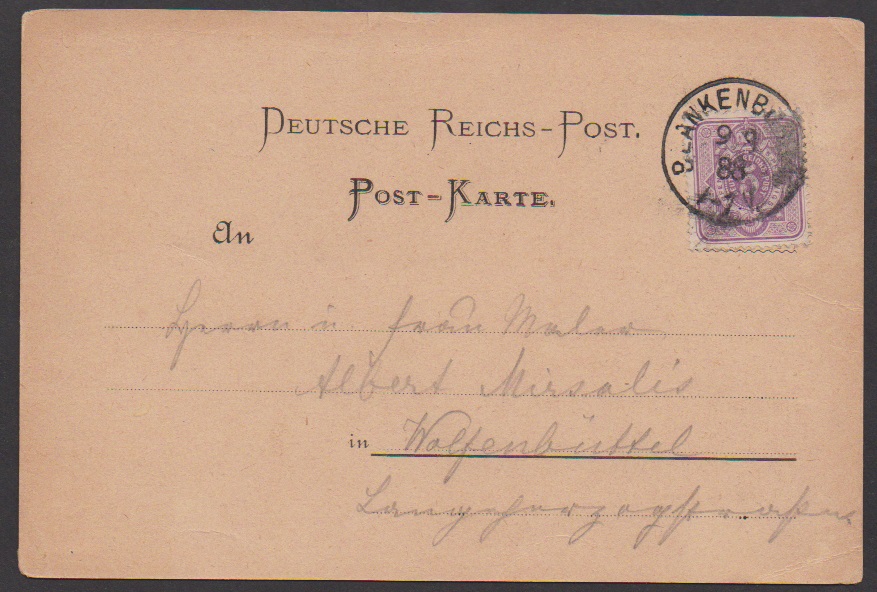 DEUTSCHE REICHS-POST.
POST-KARTE.
An
Herrn u. Frau Maler
Albert Mirsalis
in Wolfenbüttel
Langeherzogstraße
BLANKENBU
9 9
88